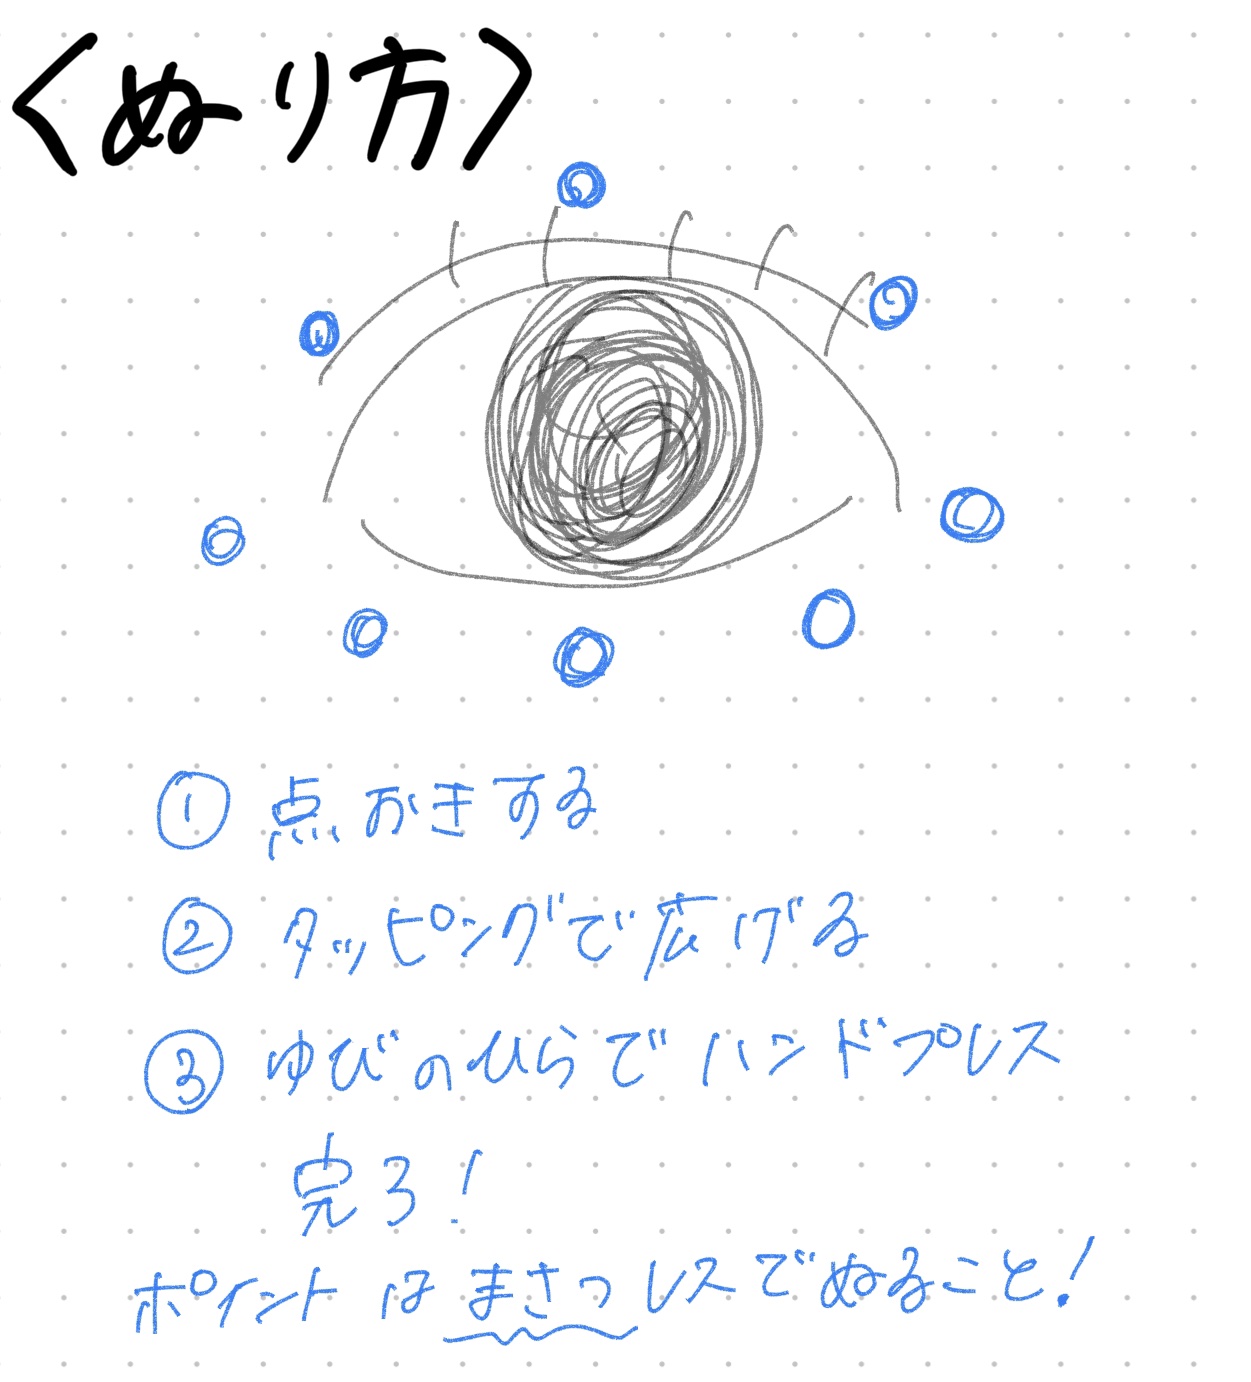 〈ぬり方〉
① 点おきする
② タッピングで広げる
③ ゆびのひらでハンドプレス
完了!
ポイントはまさつレスでぬること!